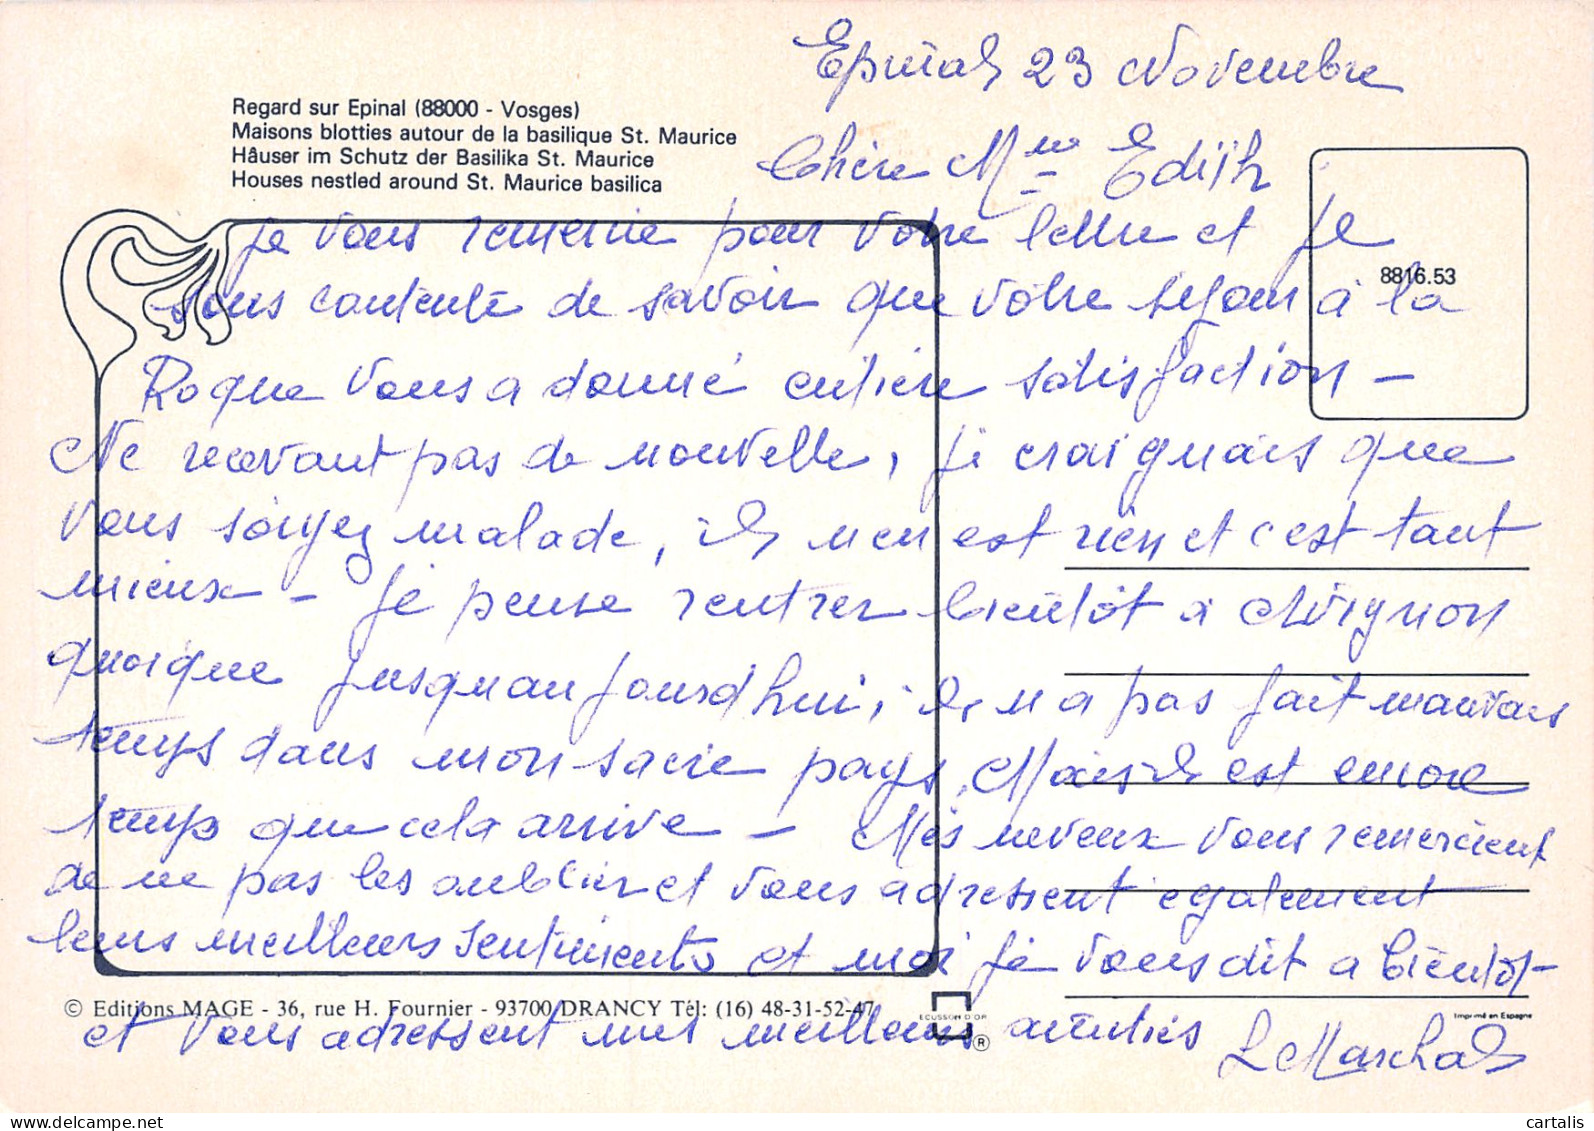 Epinal 23 Novembre
Regard sur Epinal (88000 - Vosges)
Maisons blotties autour de la basilique St. Maurice
Häuser im Schutz der Basilika St. Maurice
Houses nestled around St. Maurice basilica
Chère Mme Edith
je vous remercie pour votre lettre et je
8816.53
suis contente de savoir que votre sejour à la
Roque vous a donné entière satisfaction -
Ne recevant pas de nouvelle, je craignais que
vous soiyez malade, il n en est rien et c est tant
mieux - Je pense rentrer bientôt à Avignon
quoique jusquaujourdhui, il n a pas fait mauvais
temps dans mon sacré pays, Mais il est encore
temps que cela arrive - Mes neveux vous remercient
de ne pas les oublier et vous adressent egalement
leurs meilleurs sentiments et moi je vous dit a bientôt -
© Editions MAGE - 36, rue H. Fournier - 93700 DRANCY Tél: (16) 48-31-52-47
ECUSSON D'OR
®
Imprimé en Espagne
et vous adressent mes meilleurs amitiés
L Marchal
cartalis